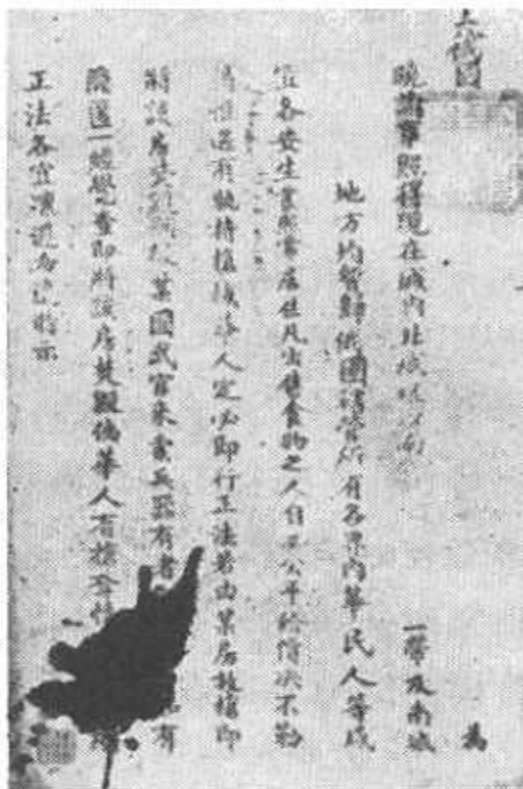 大俄國
為
曉諭事照得現在城內北城以南一帶及南城
地方均暫歸俄國該管所有各界內華民人等咸
宜各安生業照常居住凡出售食物之人自必公平給價決不勒
還有執持槍械華人定必即行正法若由某房放槍即
將該房焚毀 某國武官來索兵器有者
一經 查即將該房焚毀倘華人有搶奪情
正法各宜凜遵為此特示